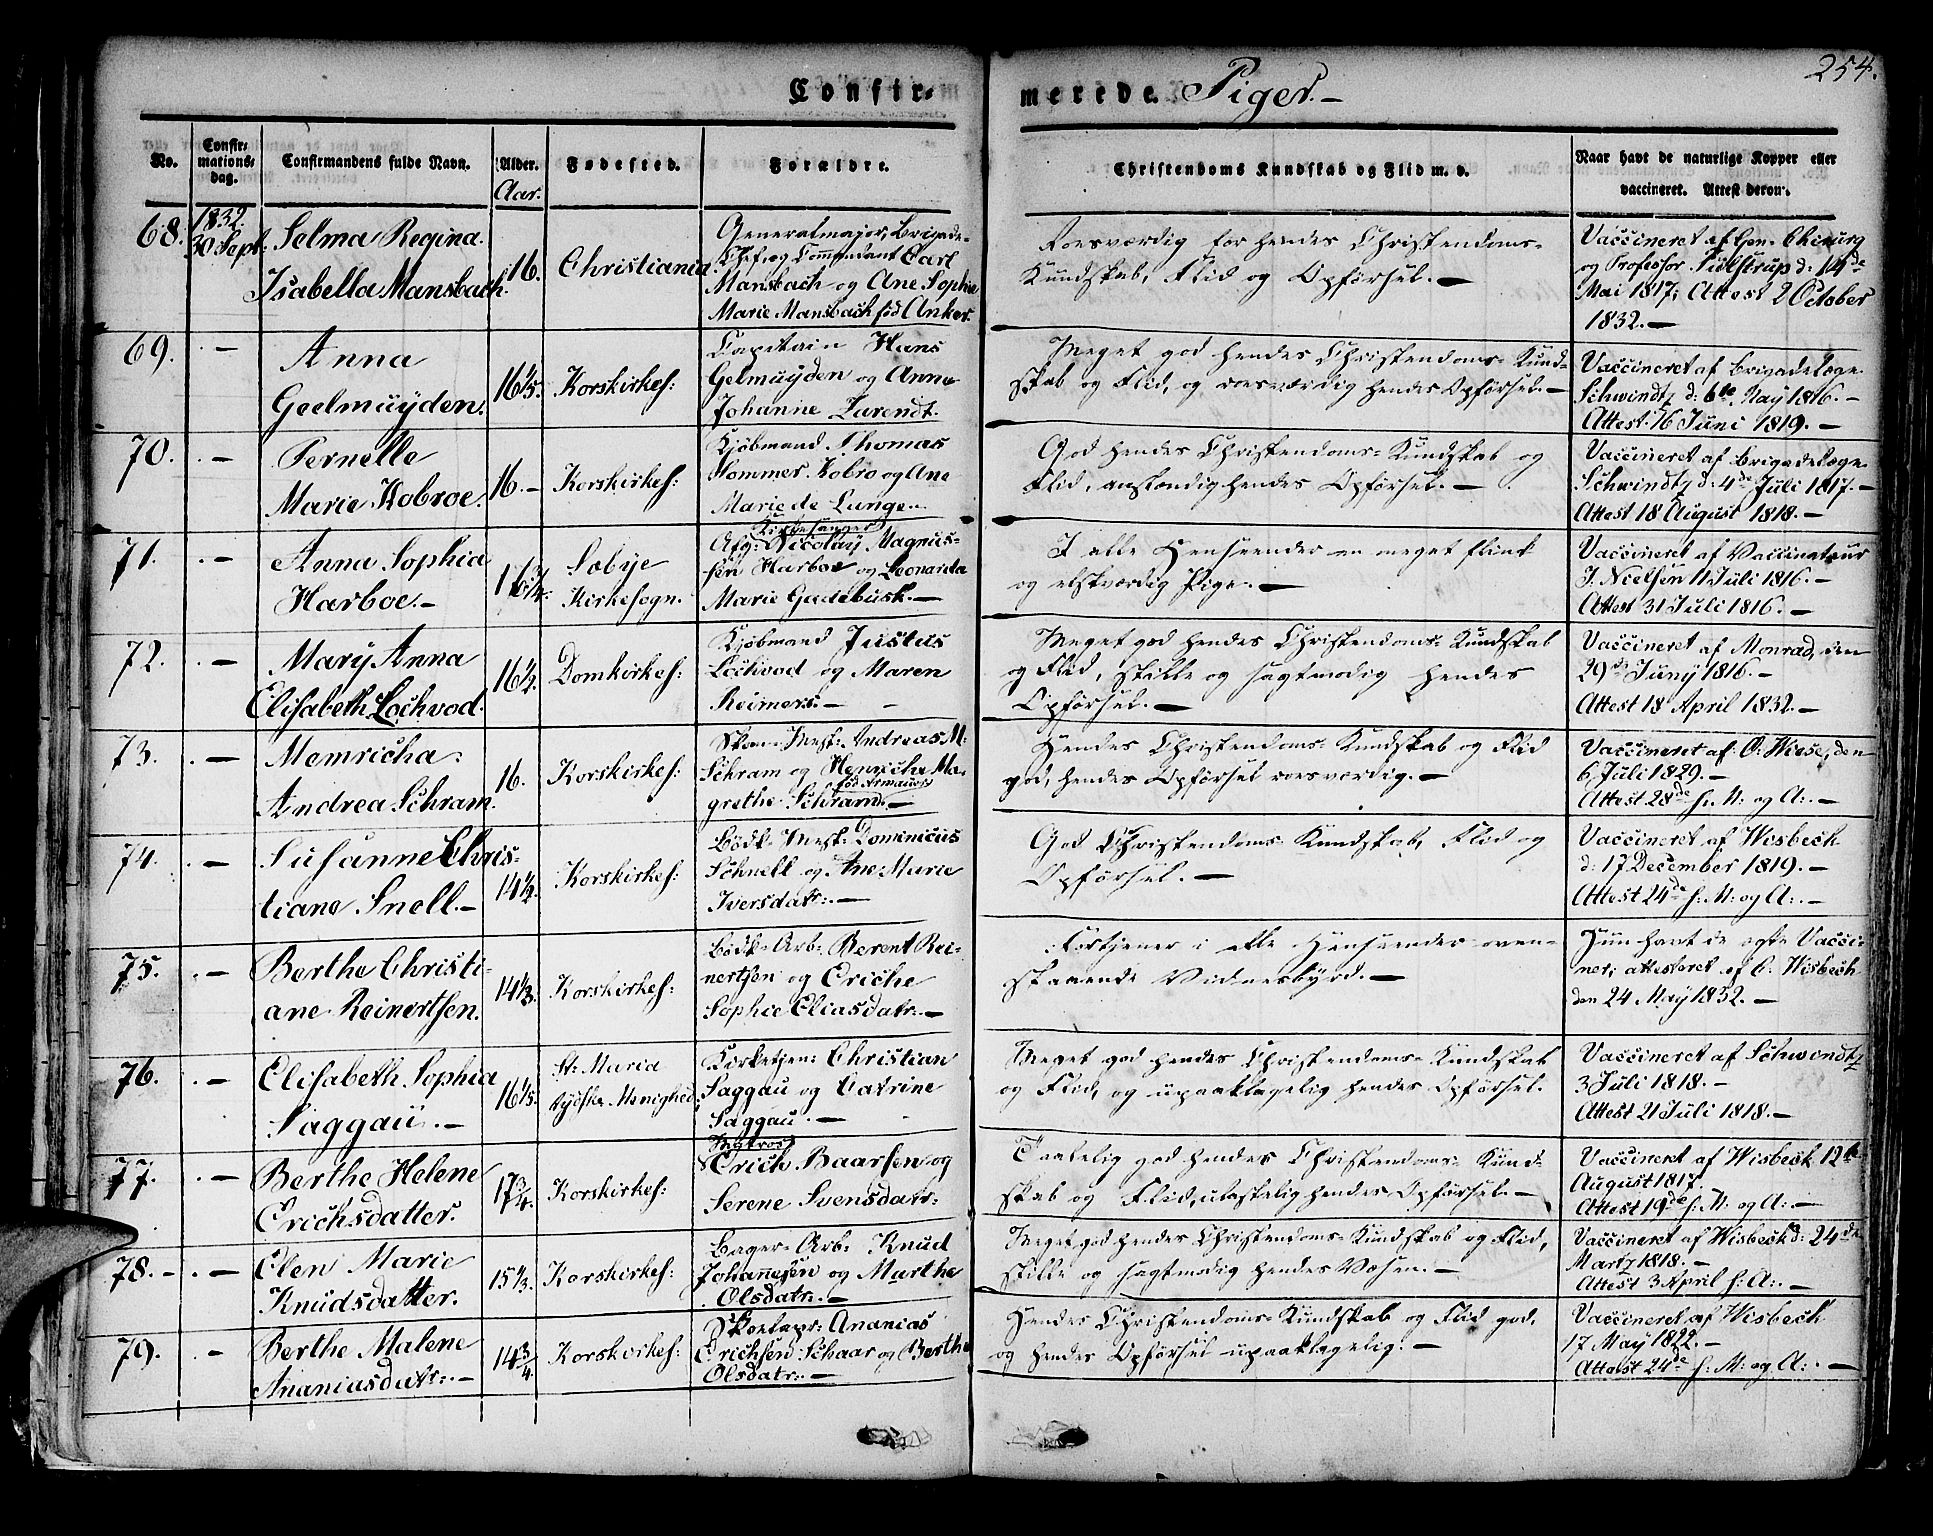 254.
Confirmerede Piger.
No.
Confirmationsdag.
Confirmandens fulde Navn.
Alder.
Aar.
Fødested.
Forældre.
Christendoms Kundskab og Flid m. v.
Naar havt de naturlige Kopper eller
vaccineret. Attest derom.
68.
1832.
30 Sept.
Selma Regina
Isabella Mansbach.
16.
Christiania
Generalmajor, Brigade-
Chef, og Commendant Carl
Mansbach og Ane Sophie
Marie Mansbach fød Anker.
Roesværdig for hendes Christendoms-
Kundskab, Flid og Opførsel. —
Vaccineret af Gen: Chirurg
og Professor d: 14de
Mai 1817; Attest 2 October
1832. —
69.
. —
Anna
Geelmuyden.
16 1/5.
Korskirkes:
Capitain Hans
Gelmuyden og Anna
Johanne
Meget god hendes Christendoms-Kund-
skab og Flid, og roesværdig hendes Opførsel. —
Vaccineret af Brigadelæge
Schwindtz d: 6te May 1816. —
Attest 16 Juni 1819. —
70.
. —
Pernelle
Marie Kobroe.
16. —
Korskirkes:
Kjøbmand Thomas
Hommer Kobro og Ane
Marie de Lange.
God hendes Christendoms-Kundskab og
Flid, anstændig hendes Opførsel. —
Vaccineret af Brigadelæge
Schwindtz d: 4de Juli 1817. —
Attest 18 August 1818. —
71.
. —
Anna Sophia
Harboe. —
16 3/4.
Sæbye
Kirkesogn.
Kirkesanger
Afg: Nicolay Magnus-
sen Harboe og Leonarda
Marie Gadebusk. —
I alle Henseender en meget flink
og elskværdig Pige. —
Vaccineret af Vaccinateur
J. Nielsen 11 Juli 1816. —
Attest 31 Juli 1816. —
72.
. —
Mary Anna
Elisabeth Lochvod.
16 1/2.
Domkirkes:
Kjøbmand Justus
Lochvod og Maren
Reimers. —
Meget god hendes Christendoms-Kundskab
og Flid, stille og sagtmodig hendes
Opførsel. —
Vaccineret af Monrad, den
29de Juny 1816. —
Attest 18 April 1832. —
73.
. —
Memricha
Andrea Schram.
16.
Korskirkes:
Skom: Mest: Andreas M.
Schram og Henricha Ma-
fød Armauer
grethe Schram. —
Hendes Christendoms-Kundskab og Flid
god, hendes Opførsel roesværdig. —
Vaccineret af: O: Wiese, den
6 Juli 1829. —
Attest 28de s: M: og A: —
74.
. —
Susanne Chris-
tiane Snell. —
14 1/2.
Korskirkes:
Bødk: Mest: Dominicus
Schnell og Ane Marie
Iversdatr: —
God Christendoms-Kundskab, Flid og
Opførsel. —
Vaccineret af Wisbech
d: 17 December 1819. —
Attest 24de s: M: og A: —
75.
. —
Berthe Christi-
ane Reinertsen.
14 1/3.
Korskirkes:
Bødk: Arb: Berent Rei-
nertsen og Eriche
Sophie Eliasdatr: —
Fortjener i alle Henseender oven-
staaende Vidnesbyrd. —
Hun havt de ægte Vacci-
ner; attesteret af C. Wisbech
den 24 May 1832. —
76.
. —
Elisabeth Sophia
Saggau. —
16 1/5.
St: Maria
tydske Menighed:
Kirketjen: Christian
Saggau og Catrine
Saggau. —
Meget god hendes Christendoms-Kundskab
og Flid, og upaaklagelig hendes Opførsel.
Vaccineret af Schwindtz
3 Juli 1818. —
Attest 21 Juli 1818. —
77.
. —
Berthe Helene
Erichsdatter.
17 3/4.
Korskirkes:
Matros
Erich Baarsen og
Serene Svensdatr:
Taalelig god hendes Christendoms-Kund-
skab og Flid, ulastelig hendes Opførsel. —
Vaccineret af Wisbech 12te
August 1817. —
Attest 19de s: M: og A: —
78. —
. —
Elen Marie
Knudsdatter.
15 1/3.
Korskirkes:
Bager-Arb: Knud
Johannesen og Marthe
Olsdatr: —
Meget god hendes Christendoms-Kundskab og Flid,
stille og sagtmodig hendes Væsen. —
Vaccineret af Wisbech d: 24de
Martz 1818. —
Attest 3 April s: A: —
79.
. —
Berthe Malene
Ananiasdatr: —
14 3/4.
Korskirkes:
Skoelapr: Ananias
Erichsen Schaar og Berthe
Olsdatr: —
Hendes Christendoms-Kundskab og Flid god,
og hendes Opførsel upaaklagelig. —
Vaccineret af Wisbech
17 May 1822. —
Attest 24de s: M: og A: —